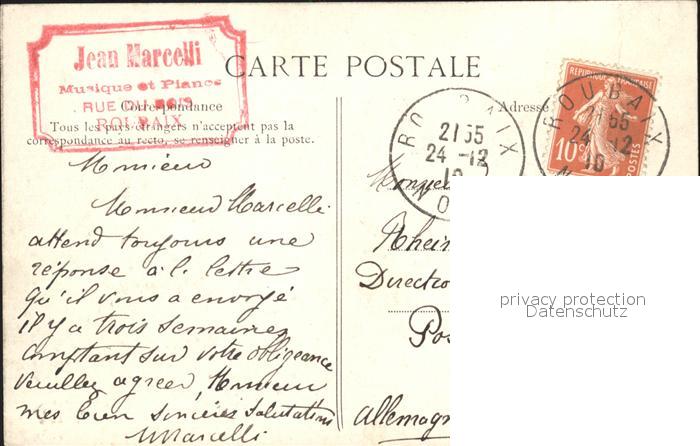 Jean Marcelli
Musique et Pianos
RUE DU BOIS
ROUBAIX
CARTE POSTALE
Correspondance
Tous les pays étrangers n'acceptent pas la
correspondance au recto, se renseigner à la poste.
Adresse
ROUBAIX
21 55
24 -12
10
NORD
ROUBAIX
21 55
24 -12
10
REPUBLIQUE FRANÇAISE
10c
POSTES
Monsieur
Monsieur Marcelli
attend toujours une
réponse à la lettre
qu'il vous a envoyé
il y a trois semaines
comptant sur votre obligeance
veuillez agréer, Monsieur
mes bien sincères salutations
Marcelli
Rhein
Directio
Pos
Allemagn
privacy protection
Datenschutz